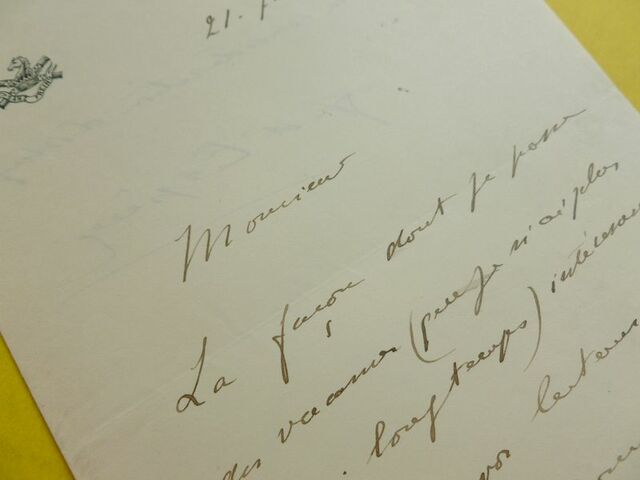 21.
Monsieur
La façon dont je passe
des vacances (que je n'ai plus
longtemps) intéresser
vos lecteurs